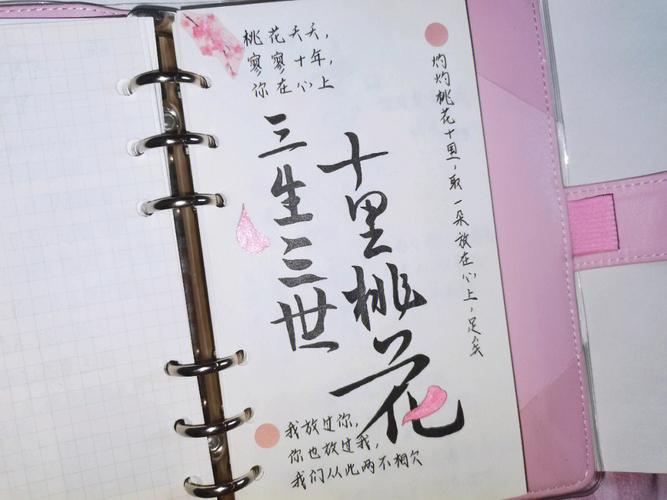 桃花夭夭，
寥寥十年，
你在心上
灼灼桃花十里，取一朵放在心上，足矣
三生三世
十里桃花
我放过你，
你也放过我，
我们从此两不相欠